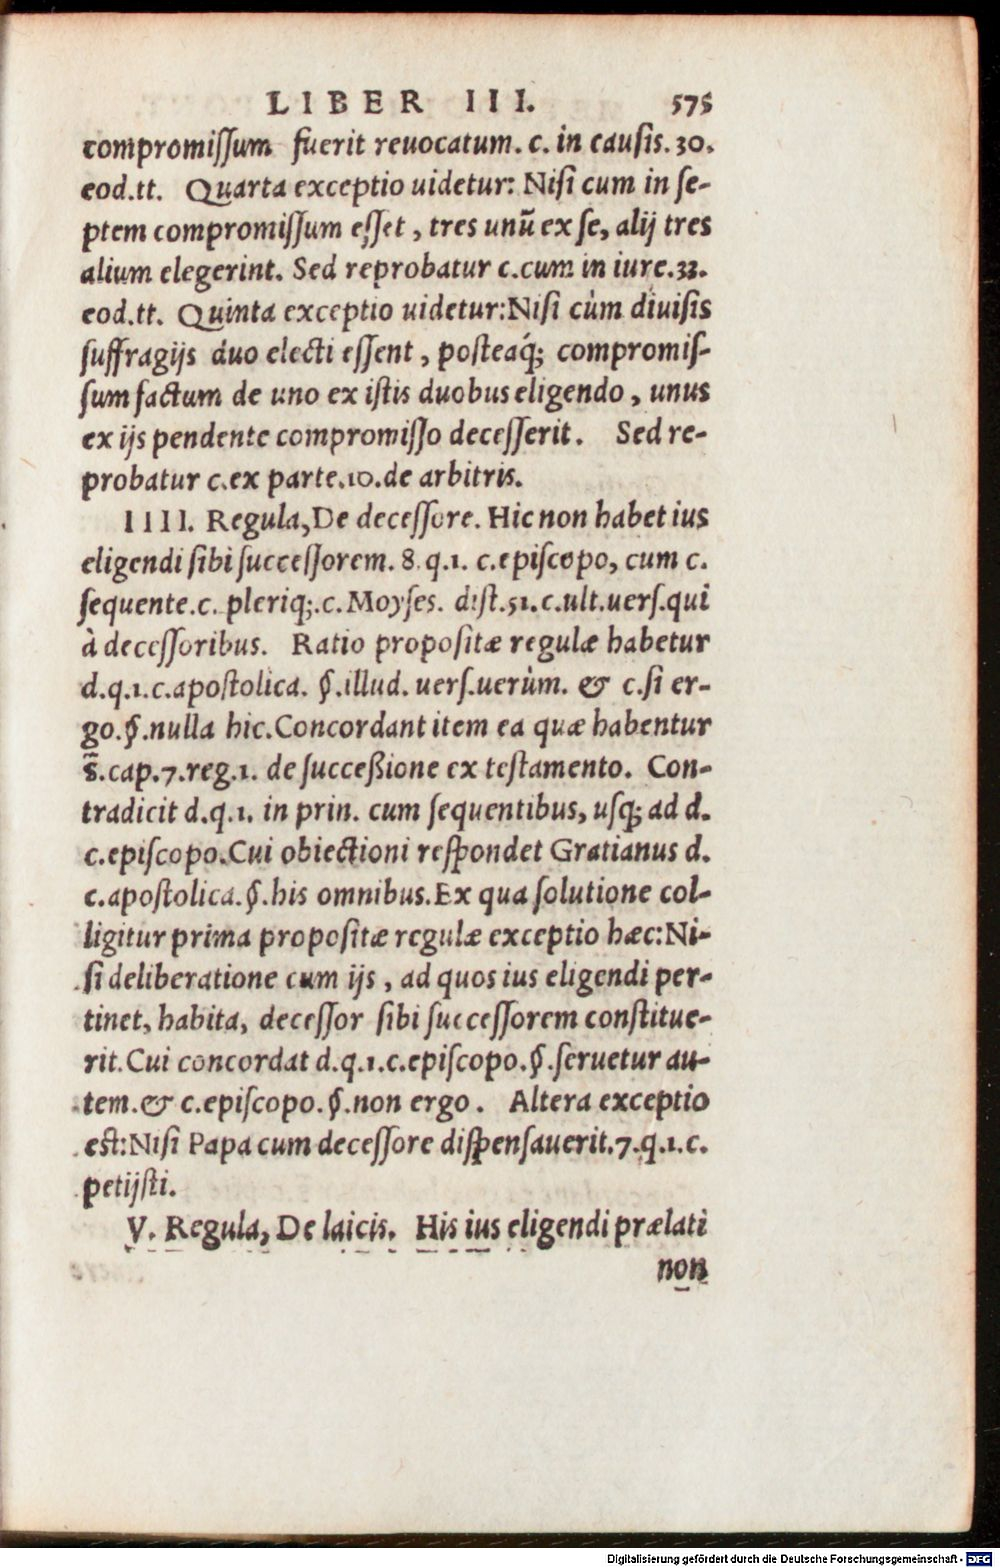 LIBER III. 575
compromissum fuerit reuocatum. c. in causis. 30.
eod.tt. Quarta exceptio uidetur: Nisi cum in se-
ptem compromissum esset, tres unū ex se, alij tres
alium elegerint. Sed reprobatur c.cum in iure.33.
eod.tt. Quinta exceptio uidetur:Nisi cùm diuisis
suffragijs duo electi essent, posteaq́; compromis-
sum factum de uno ex istis duobus eligendo, unus
ex ijs pendente compromisso decesserit. Sed re-
probatur c.ex parte.10.de arbitris.
IIII. Regula,De decessore. Hic non habet ius
eligendi sibi successorem. 8.q.1. c.episcopo, cum c.
sequente.c. pleriq;.c.Moyses. dist.51.c.ult.uers.qui
à decessoribus. Ratio propositæ regulæ habetur
d.q.1.c.apostolica. §.illud. uers.uerùm. & c.si er-
go.§.nulla hic.Concordant item ea quæ habentur
s̄.cap.7.reg.1. de succeßione ex testamento. Con-
tradicit d.q.1. in prin. cum sequentibus, usq; ad d.
c.episcopo.Cui obiectioni respondet Gratianus d.
c.apostolica.§.his omnibus.Ex qua solutione col-
ligitur prima propositæ regulæ exceptio hæc:Ni-
si deliberatione cum ijs, ad quos ius eligendi per-
tinet, habita, decessor sibi successorem constitue-
rit.Cui concordat d.q.1.c.episcopo.§.seruetur au-
tem.& c.episcopo.§.non ergo. Altera exceptio
est:Nisi Papa cum decessore dispensauerit.7.q.1.c.
petijsti.
V. Regula, De laicis. His ius eligendi prælati
non
Digitalisierung gefördert durch die Deutsche Forschungsgemeinschaft - DFG